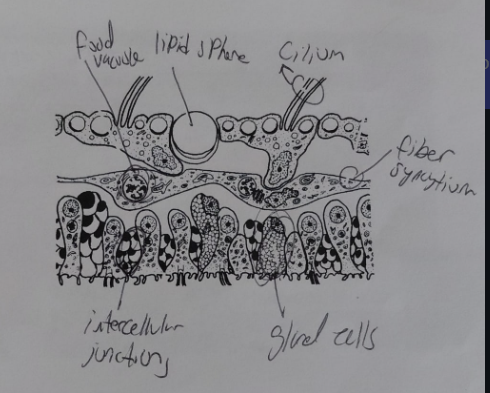 food vacuole
lipid sphere
cilium
fiber
syncytium
intercellular
junctions
gland cells